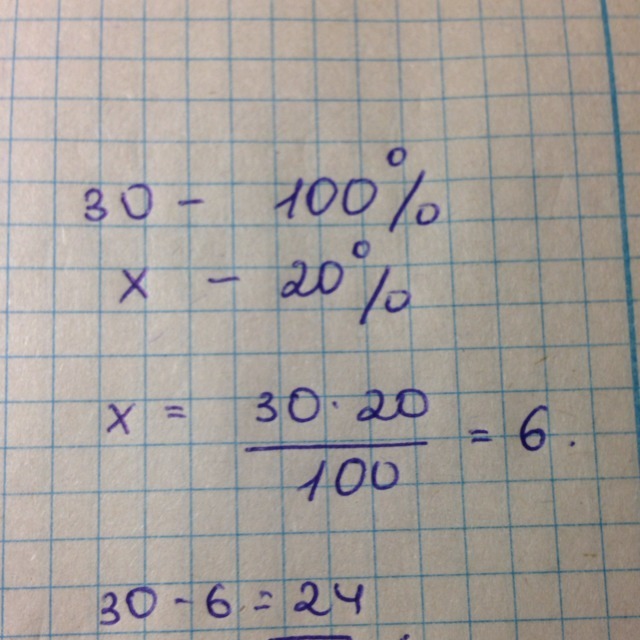 30 - 100%
x - 20%
x = 30·20/100 = 6.
30-6=24